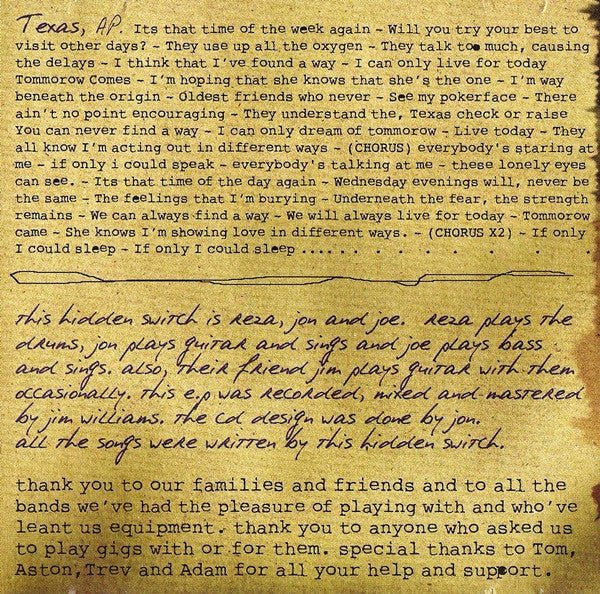 Texas, AP. Its that time of the week again - Will you try your best to
visit other days? - They use up all the oxygen - They talk too much, causing
the delays - I think that I've found a way - I can only live for today
Tommorow Comes - I'm hoping that she knows that she's the one - I'm way
beneath the origin - Oldest friends who never - See my pokerface - There
ain't no point encouraging - They understand the, Texas check or raise
You can never find a way - I can only dream of tommorow - Live today - They
all know I'm acting out in different ways - (CHORUS) everybody's staring at
me - if only i could speak - everybody's talking at me - these lonely eyes
can see. - Its that time of the day again - Wednesday evenings will, never be
the same - The feelings that I'm burying - Underneath the fear, the strength
remains - We can always find a way - We will always live for today - Tommorow
came - She knows I'm showing love in different ways. - (CHORUS X2) - If only
I could sleep - If only I could sleep ... . . . . . . . . . .
this hidden switch is reza, jon and joe. reza plays the
drums, jon plays guitar and sings and joe plays bass
and sings. also, their friend jim plays guitar with them
occasionally. this e.p was recorded, mixed and mastered
by jim williams. the cd design was done by jon.
all the songs were written by this hidden switch.
thank you to our families and friends and to all the
bands we've had the pleasure of playing with and who've
leant us equipment. thank you to anyone who asked us
to play gigs with or for them. special thanks to Tom,
Aston,Trev and Adam for all your help and support.